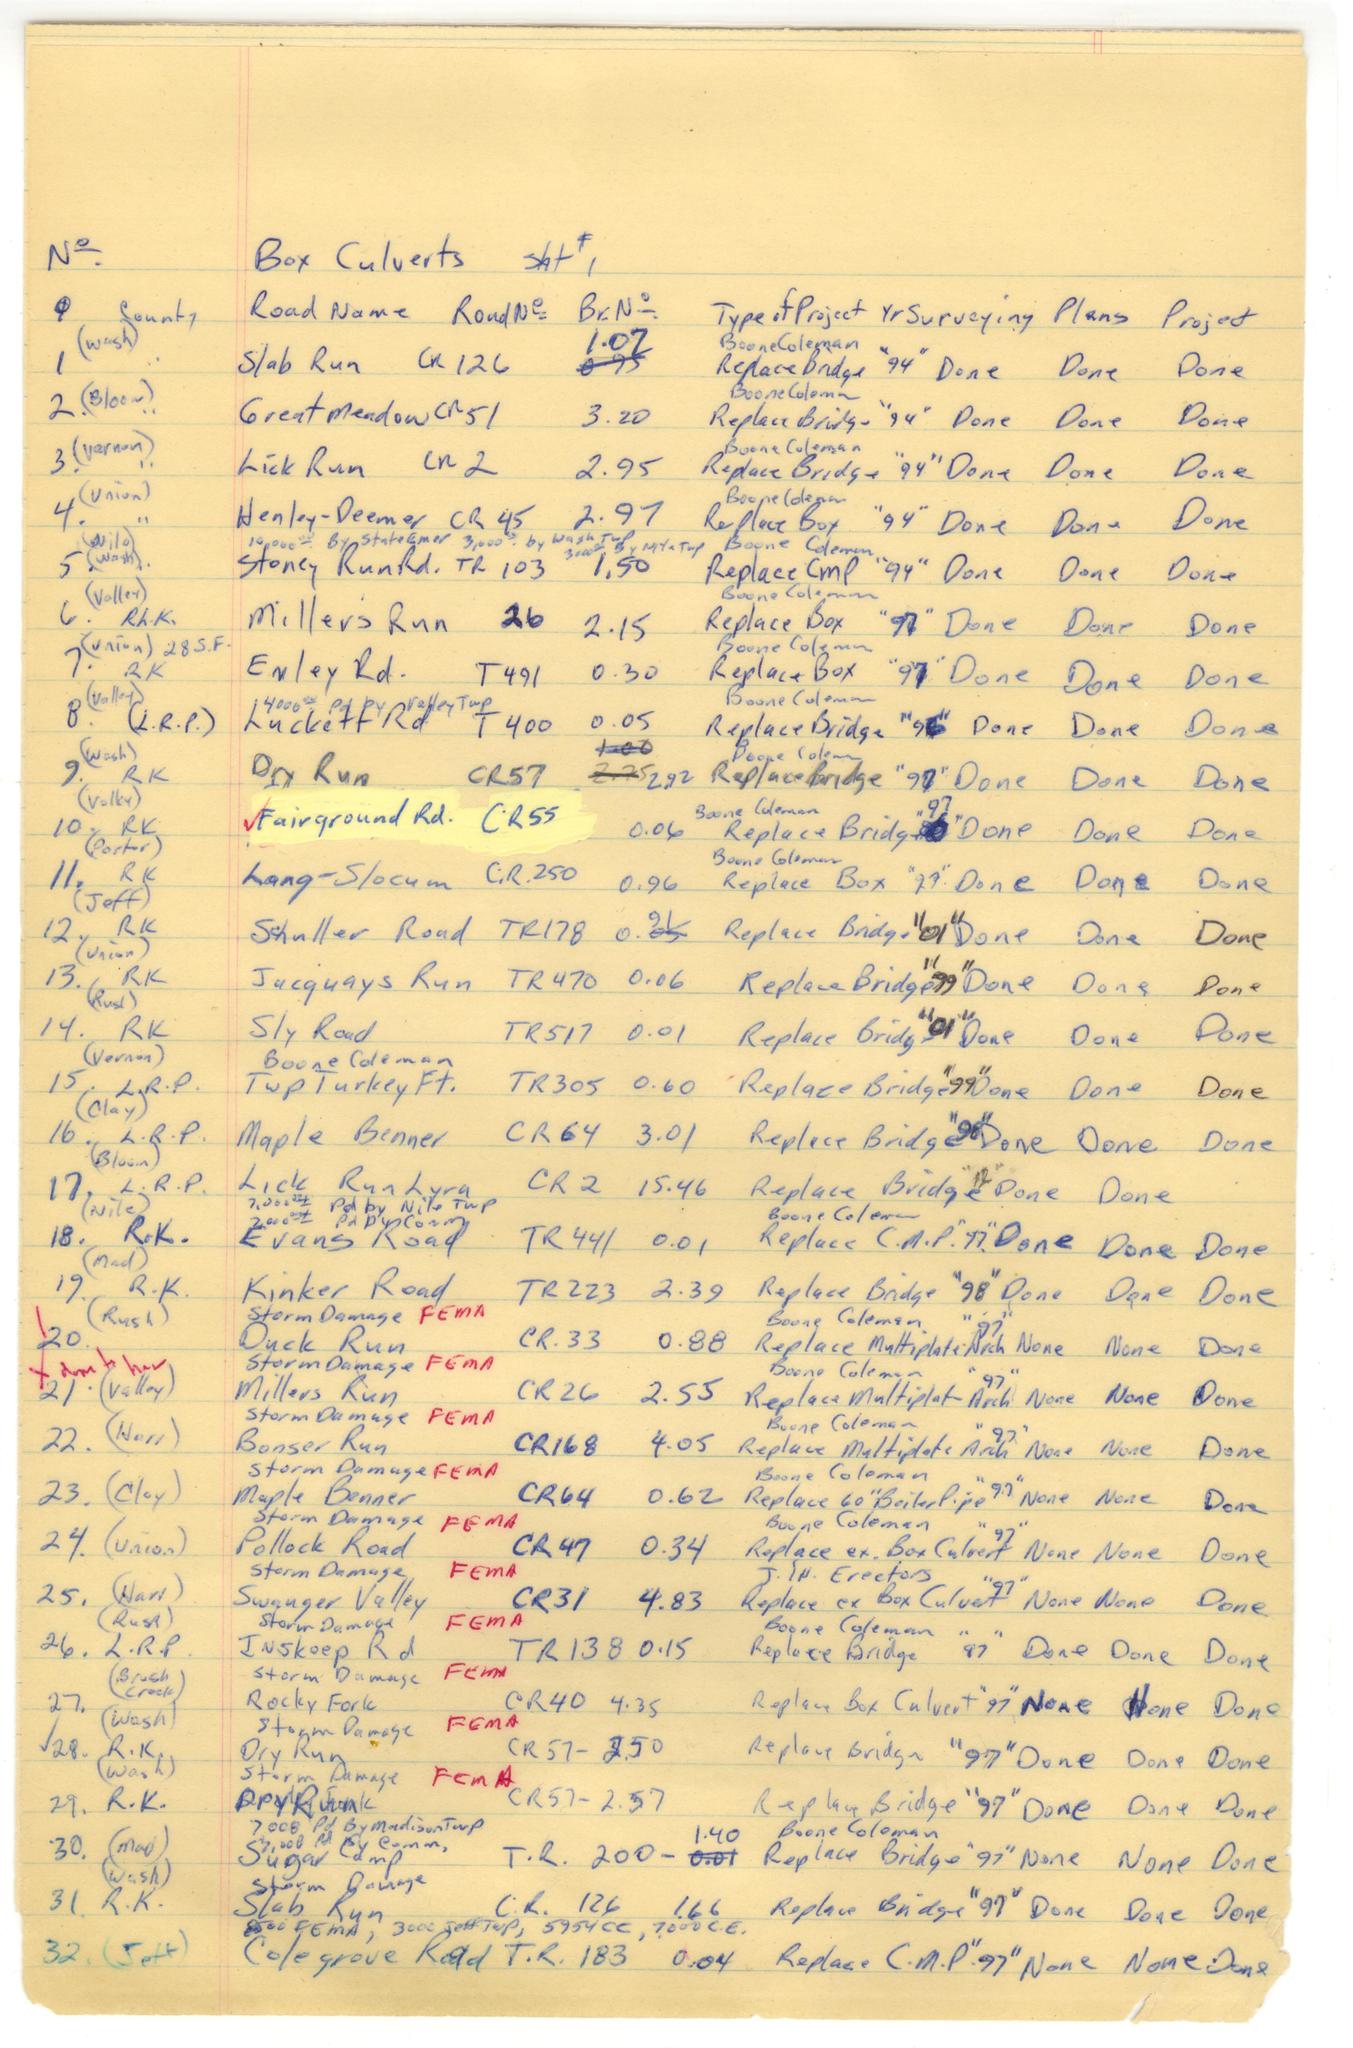 Nº. Box Culverts sht # 1
County Road Name Road Nº Br.Nº Type of Project Yr Surveying Plans Project
(Wash) 1.07 Boone Coleman
1 " Slab Run CR 126 0.95 Replace Bridge "94" Done Done Done
(Bloom) Boone Coleman
2. " Great Meadow CR 51 3.20 Replace Bridge "94" Done Done Done
(Vernon) Boone Coleman
3. " Lick Run CR 2 2.95 Replace Bridge "94" Done Done Done
(Union) Boone Coleman
4. " Henley-Deemer CR 45 2.97 Replace Box "94" Done Done Done
(Nile) 10,000 By State Emer 3,000 by Wash Twp 3000 By Nile Twp Boone Coleman
5 (Wash). Stoney Run Rd. TR 103 1.50 Replace CMP "94" Done Done Done
(Valley) Boone Coleman
6. R.K. Millers Run 26 2.15 Replace Box "97" Done Done Done
(Union) 28 S.F. Boone Coleman
7. RK Enley Rd. T491 0.30 Replace Box "97" Done Done Done
(Valley) 4000 Pd by Valley Twp Boone Coleman
8. (L.R.P.) Luckett Rd T400 0.05 Replace Bridge "96" Done Done Done
(Wash) 1.00 Boone Colem
9. RK Dry Run CR57 2.75 2.92 Replace Bridge "97" Done Done Done
(Valley) Boone Coleman "97
10. RK Fairground Rd. CR55 0.06 Replace Bridge " Done Done Done
(Porter) Boone Coleman
11. RK Lang-Slocum C.R.250 0.96 Replace Box "97" Done Done Done
(Jeff)
12. RK Shuller Road TR178 0. Replace Bridge "01" Done Done Done
(Union)
13. RK Jacquays Run TR470 0.06 Replace Bridge "99" Done Done Done
(Rush)
14. RK Sly Road TR517 0.01 Replace Bridge "01" Done Done Done
(Vernon) Boone Coleman
15. L.R.P. Twp Turkey Ft. TR305 0.60 Replace Bridge "99" Done Done Done
(Clay)
16. L.R.P. Maple Benner CR64 3.01 Replace Bridge "98" Done Done Done
(Bloom)
17. L.R.P. Lick Run Lyra CR 2 15.46 Replace Bridge "12" Done Done
(Nile) 7,000 Pd by Nile Twp
7,000 Pd by Comm Boone Coleman
18. R.K. Evans Road TR441 0.01 Replace C.M.P. "97" Done Done Done
(Mad)
19. R.K. Kinker Road TR223 2.39 Replace Bridge "98" Done Done Done
(Rush) Storm Damage FEMA Boone Coleman "97"
20. Duck Run CR.33 0.88 Replace Multiplate Arch None None Done
Storm Damage FEMA Boone Coleman "97"
21. (Valley) Millers Run CR26 2.55 Replace Multiplat Arch None None Done
Storm Damage FEMA Boone Coleman "97"
22. (Harr) Bonser Run CR168 4.05 Replace Multiplate Arch None None Done
Storm Damage FEMA Boone Coleman
23. (Clay) Maple Benner CR64 0.62 Replace 60" Boiler Pipe "97" None None Done
Storm Damage FEMA Boone Coleman
24. (Union) Pollock Road CR47 0.34 Replace ex. Box Culvert "97" None None Done
Storm Damage FEMA J.H. Erectors
25. (Harr) Swanger Valley CR31 4.83 Replace ex Box Culvert "97" None None Done
(Rush) Storm Damage FEMA Boone Coleman
26. L.R.P. Inskoep Rd TR 138 0.15 Replace Bridge "97" Done Done Done
(Brush Creek) Storm Damage FEMA
27. Rocky Fork CR40 4.35 Replace Box Culvert "97" None None Done
(Wash) Storm Damage FEMA
28. R.K. Dry Run CR57- 2.50 Replace Bridge "97" Done Done Done
(Wash) Storm Damage FEMA
29. R.K. Dry Run CR57- 2.57 Replace Bridge "97" Done Done Done
7,000 Pd By Madison Twp
7,000 Pd By Comm. 1.40 Boone Coleman
30. (Mad) Sugar Camp T.R. 200- 0.01 Replace Bridge "97" None None Done
(Wash) Storm Damage
31. R.K. Slab Run C.R. 126 1.66 Replace Bridge "97" Done Done Done
FEMA, 3000 Jeff Twp, 5954 CC, 7,000 C.E.
32. (Jeff) Colegrove Road T.R. 183 0.04 Replace C.M.P. "97" None None Done